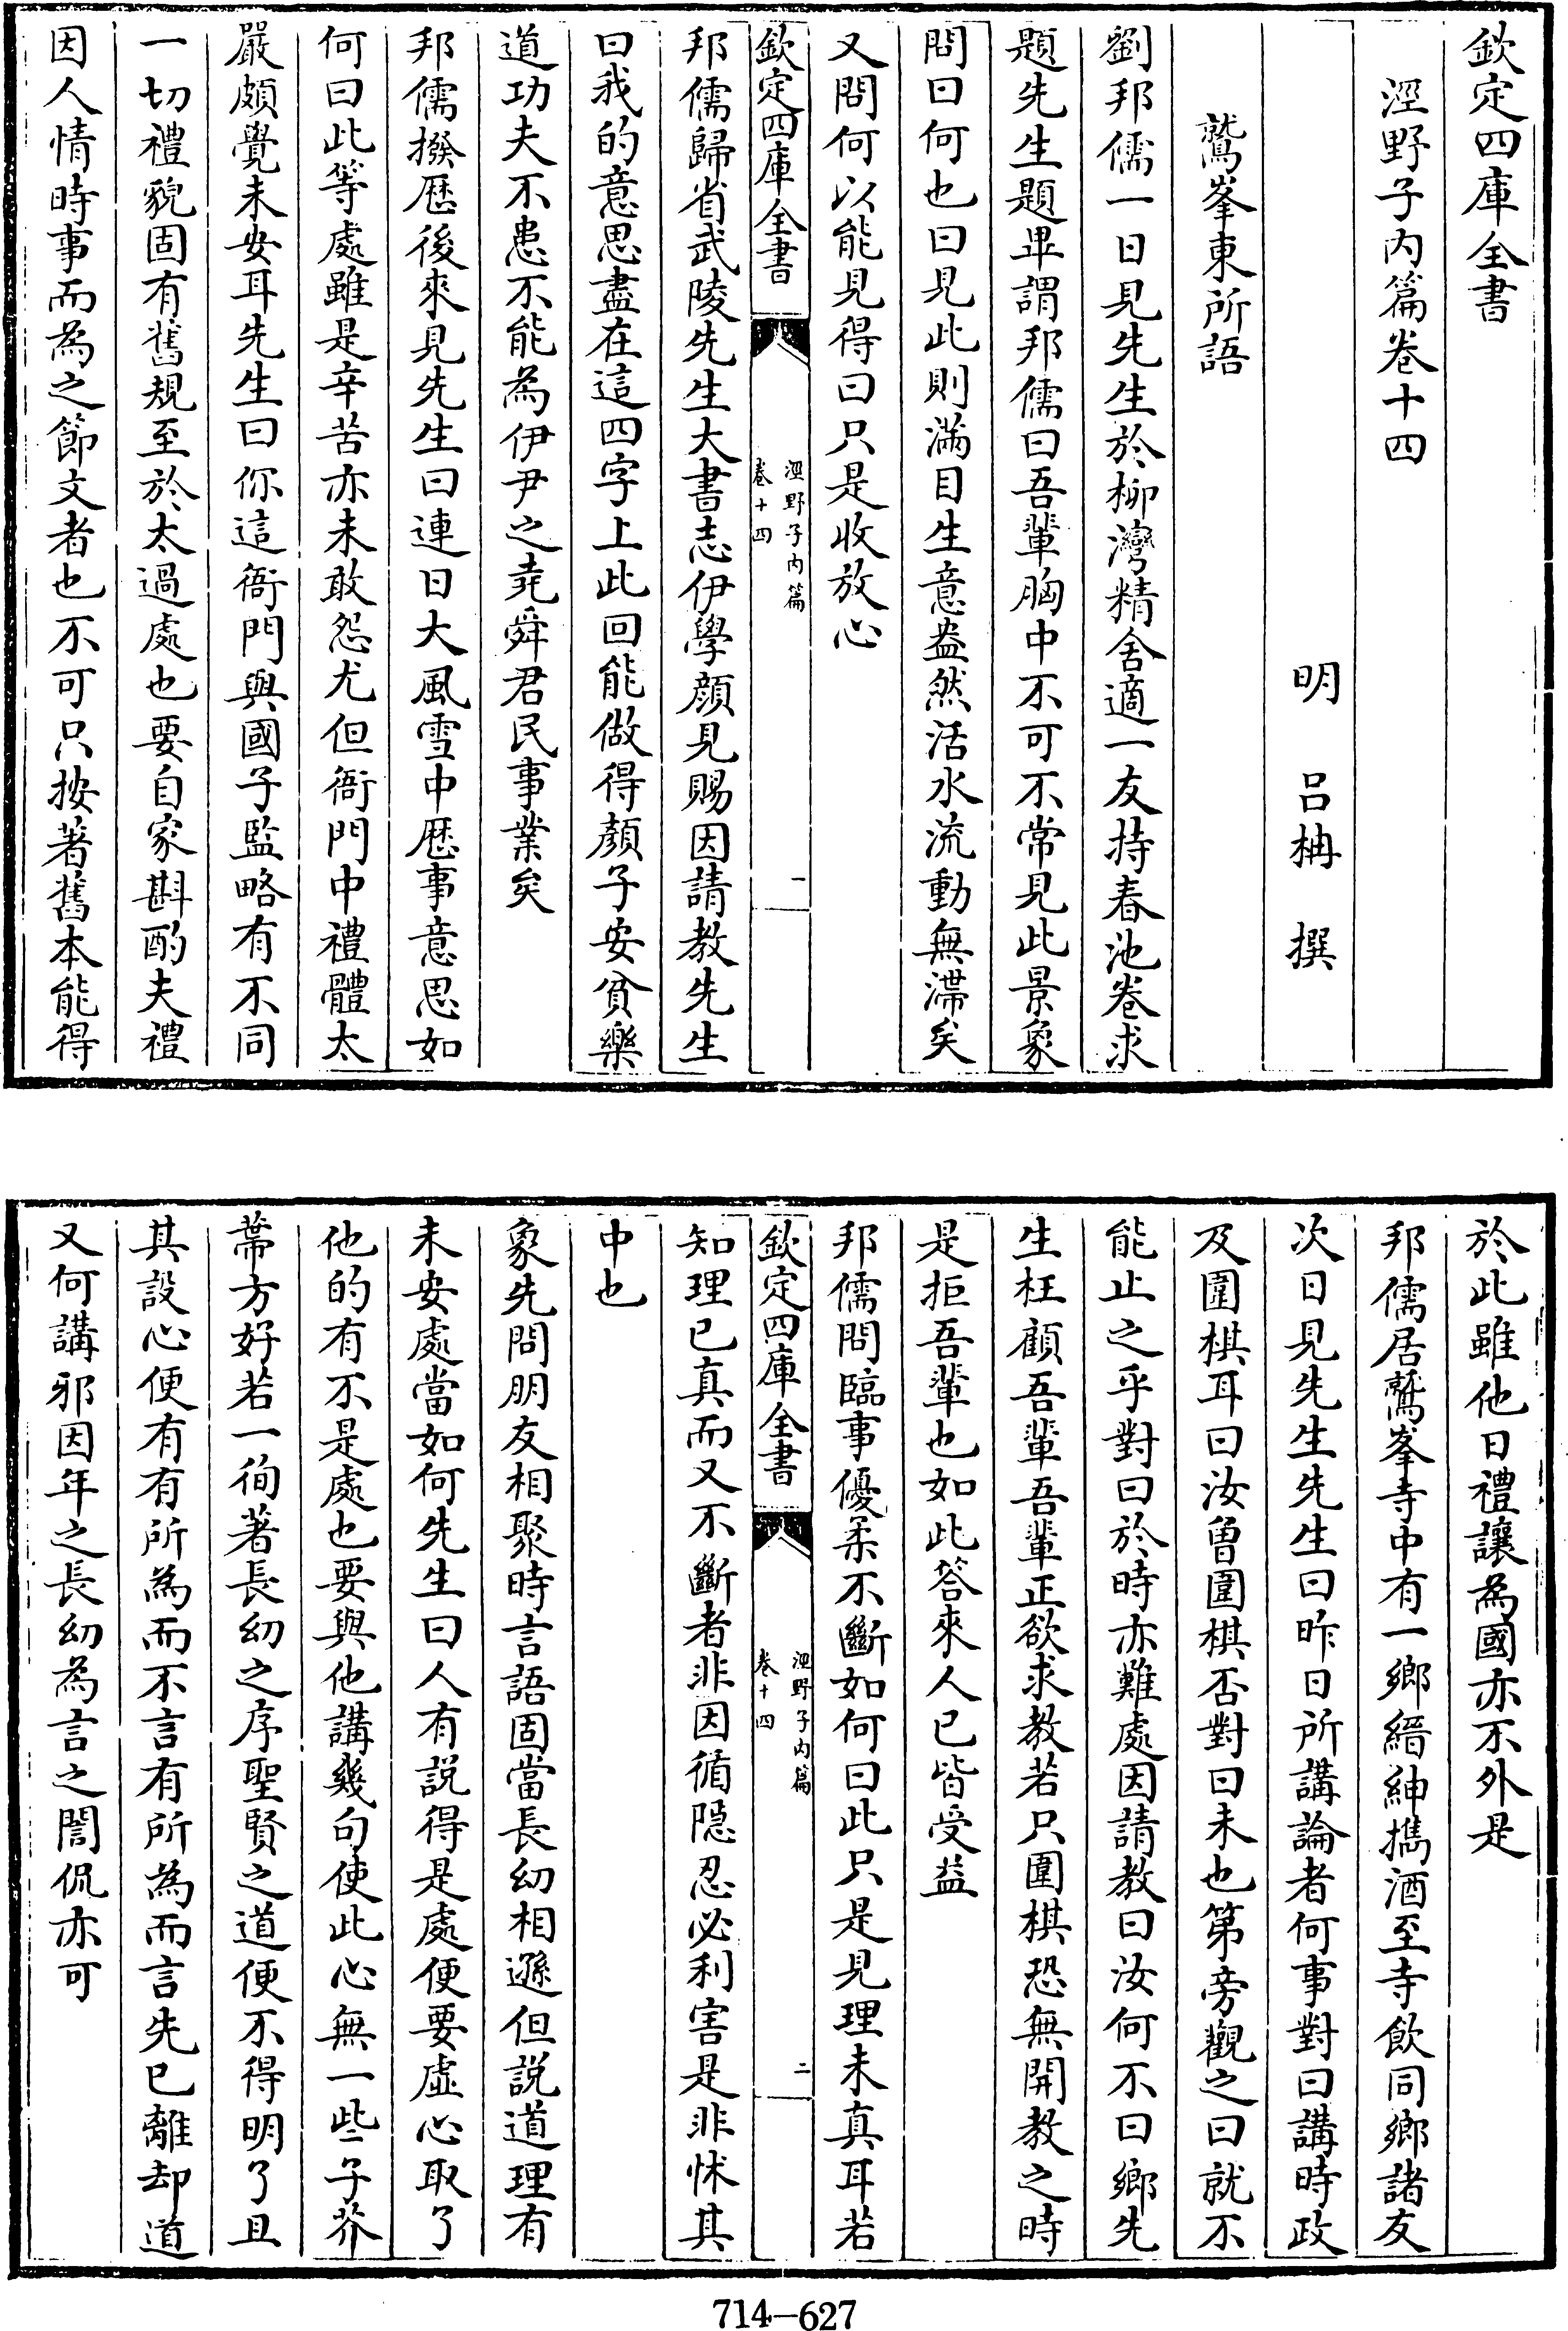 欽定四庫全書
涇野子内篇卷十四
明　呂柟　撰
鷲峯東所語
劉邦儒一日見先生於柳灣精舍適一友持春池卷求
題先生題畢謂邦儒曰吾輩胸中不可不常見此景象
問曰何也曰見此則滿目生意盎然活水流動無滯矣
又問何以能見得曰只是收放心
欽定四庫全書
涇野子内篇
卷十四
一
邦儒歸省武陵先生大書志伊學顔見賜因請教先生
曰我的意思盡在這四字上此回能做得顔子安貧樂
道功夫不患不能為伊尹之堯舜君民事業矣
邦儒撥歴後來見先生曰連日大風雪中歴事意思如
何曰此等處雖是辛苦亦未敢怨尤但衙門中禮體太
嚴頗覺未安耳先生曰你這衙門與國子監略有不同
一切禮貌固有舊規至於太過處也要自家斟酌夫禮
因人情時事而為之節文者也不可只按著舊本能得
於此雖他日禮讓為國亦不外是
邦儒居鷲峯寺中有一鄉縉紳擕酒至寺飲同鄉諸友
次日見先生先生曰昨日所講論者何事對曰講時政
及圍棋耳曰汝曾圍棋否對曰未也第旁觀之曰就不
能止之乎對曰於時亦難處因請教曰汝何不曰鄉先
生枉顧吾輩吾輩正欲求教若只圍棋恐無開教之時
是拒吾輩也如此答來人已皆受益
邦儒問臨事優柔不斷如何曰此只是見理未真耳若
欽定四庫全書
涇野子内篇
卷十四
二
知理已真而又不斷者非因循隠忍必利害是非怵其
中也
象先問朋友相聚時言語固當長幼相遜但説道理有
未安處當如何先生曰人有説得是處便要虚心取了
他的有不是處也要與他講幾句使此心無一些子芥
蔕方好若一徇著長幼之序聖賢之道便不得明了且
其設心便有有所為而不言有所為而言先已離却道
又何講邪因年之長幼為言之誾侃亦可
714—627